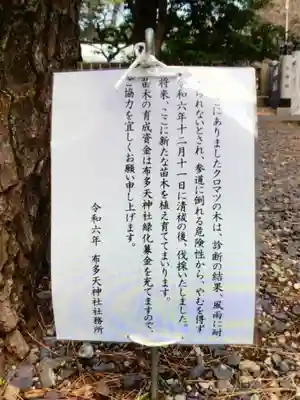 こにありましたクロマツの木は、診断の結果、風雨に耐
られないとされ、参道に倒れる危険性から、やむを得ず
令和六年十二月十一日に清祓の後、伐採いたしました。
将来、ここに新たな苗木を植え育ててまいります。
苗木の育成資金は布多天神社緑化募金を充てますので、
ご協力を宜しくお願い申し上げます。
令和六年 布多天神社社務所